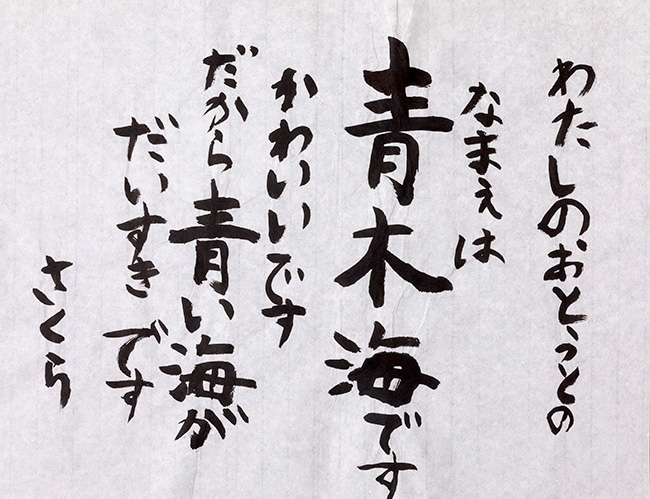 わたしのおとうとの
なまえは
青木海です
かわいいです
だから青い海が
だいすきです
さくら